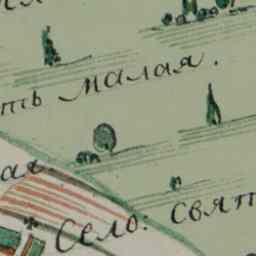 ть малая.
ая.
Село: Свят